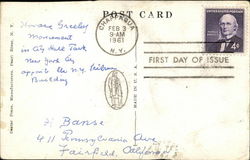 POST CARD
CHAPPAQUA
FEB 3
9-AM
1961
N.Y.
4¢
FIRST DAY OF ISSUE
Horace Greeley
Monument
in City Hall Park
New York City
opposite the N.Y. Tribune
Building
MADE IN U.S.A.
Banse
411 Pennsylvania Ave.
Fairfield, California